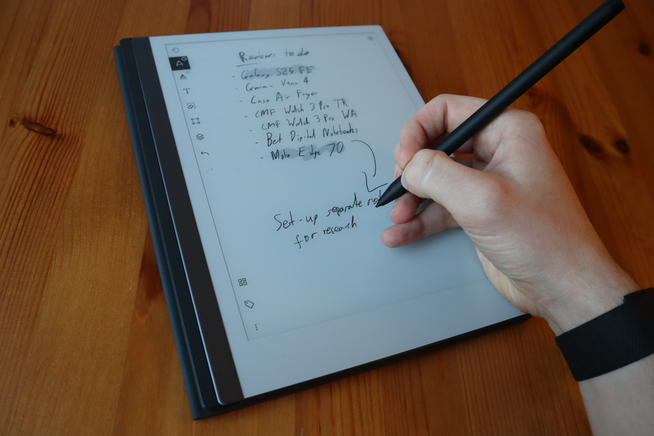 Reviews to do
- Galaxy S25 FE
- Garmin Venu 4
- Cosori Air Fryer
- CMF Watch 3 Pro TR
- CMF Watch 3 Pro WA
- Best Digital Notebooks
- Moto Edge 70
Set-up separate
for research